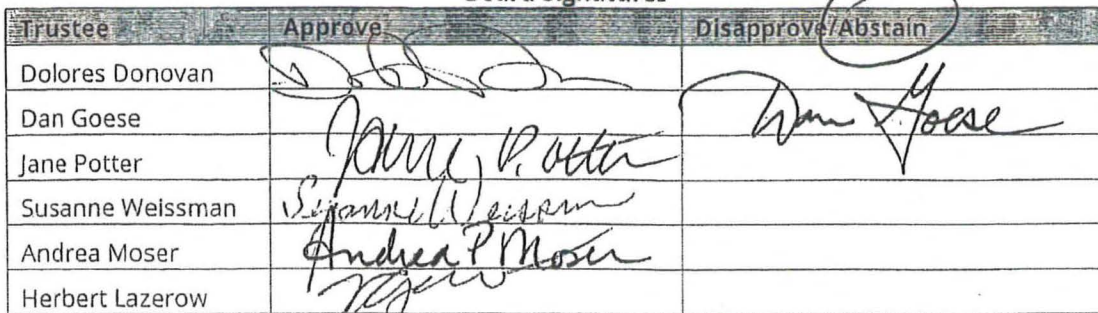 Board Signatures
Trustee Approve Disapprove/Abstain
Dolores Donovan
Dan Goese Dan Goese
Jane Potter Jane P. Potter
Susanne Weissman Susanne Weissman
Andrea Moser Andrea P Moser
Herbert Lazerow